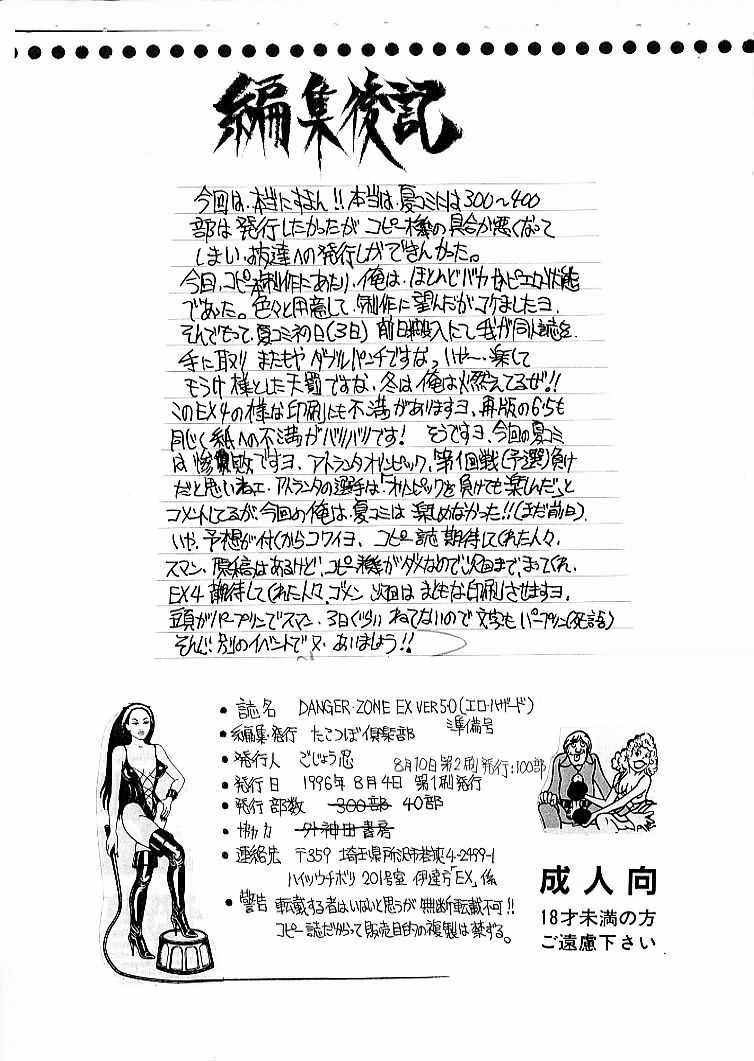 編集後記
今回は、本当にすまん!!本当は、夏コミには300〜400
部は発行したかったが コピー機の具合が悪くなって
しまい、お友達への発行しかできんかった。
今回、コピー本制作にあたり、俺は、ほとんどバカ かピエロ状態
であった。色々と用意して、制作に望んだがコケましたヨ.
そんでもって、夏コミ初日(3日) 前日搬入にて我が同人誌を.
手に取り またもや ダブルパンチですなっ いやー、楽して
もうけ様とした天罰ですな.冬は俺は燃えてるぜ!!
このEX4の様な印刷にも不満がありますヨ、再版の6・5も
同じく紙への不満がバリバリです! そうですヨ、今回の夏コミ
は惨敗ですヨ、アトランタオリンピック、第1回戦(予選)負け
だと思いねェ、アトランタの選手は「オリンピックを負けても楽しんだ」と
コメントしてるが、今回の俺は、夏コミは 楽しめなかった!!(まだ前日).
いや、予想が付くからコワイヨ、コピー誌 期待してくれた人々、
スマン、原稿はあるけど、コピー機がダメなので次回まで、まってくれ、
EX4 期待してくれた人々、ゴメン 次回は まともな印刷させますヨ、
頭がパープリンでスマン、3日ぐらい ねてないので 文字も パープリン(死語)
そんじ 別のイベントで又、あいましょう!!
● 誌名 DANGER・ZONE EX VER5・0(エロ・ハザード)
準備号
● 編集・発行 たこつぼ倶楽部
● 発行人 ごじょう忍
8月10日第2刷発行:100部
● 発行日 1996年8月4日 第1刷発行
● 発行部数 300部 40部
● 協力 外神田書房
● 連絡先 〒359 埼玉県所沢市若狭4-2499-1
ハイツウチボリ 201号室 伊達方「EX」係
● 警告 転載する者はいないと思うが 無断転載不可!!
コピー誌だからって販売目的の複製は禁ずる。
成人向
18才未満の方
ご遠慮下さい